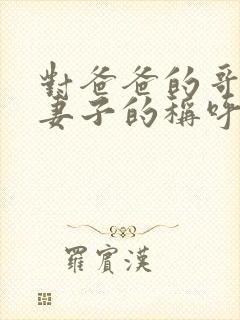 對爸爸的哥
妻子的稱呼
羅賓漢